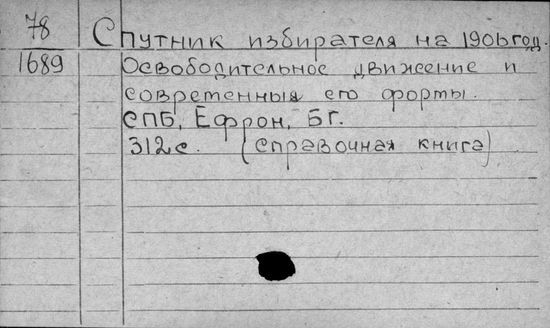 78
1689
Спутник избирателя на 1906 год.
Освободительное движение и
современныя его формы.
СПБ, Ефрон, БГ.
312 с. (справочная книга)